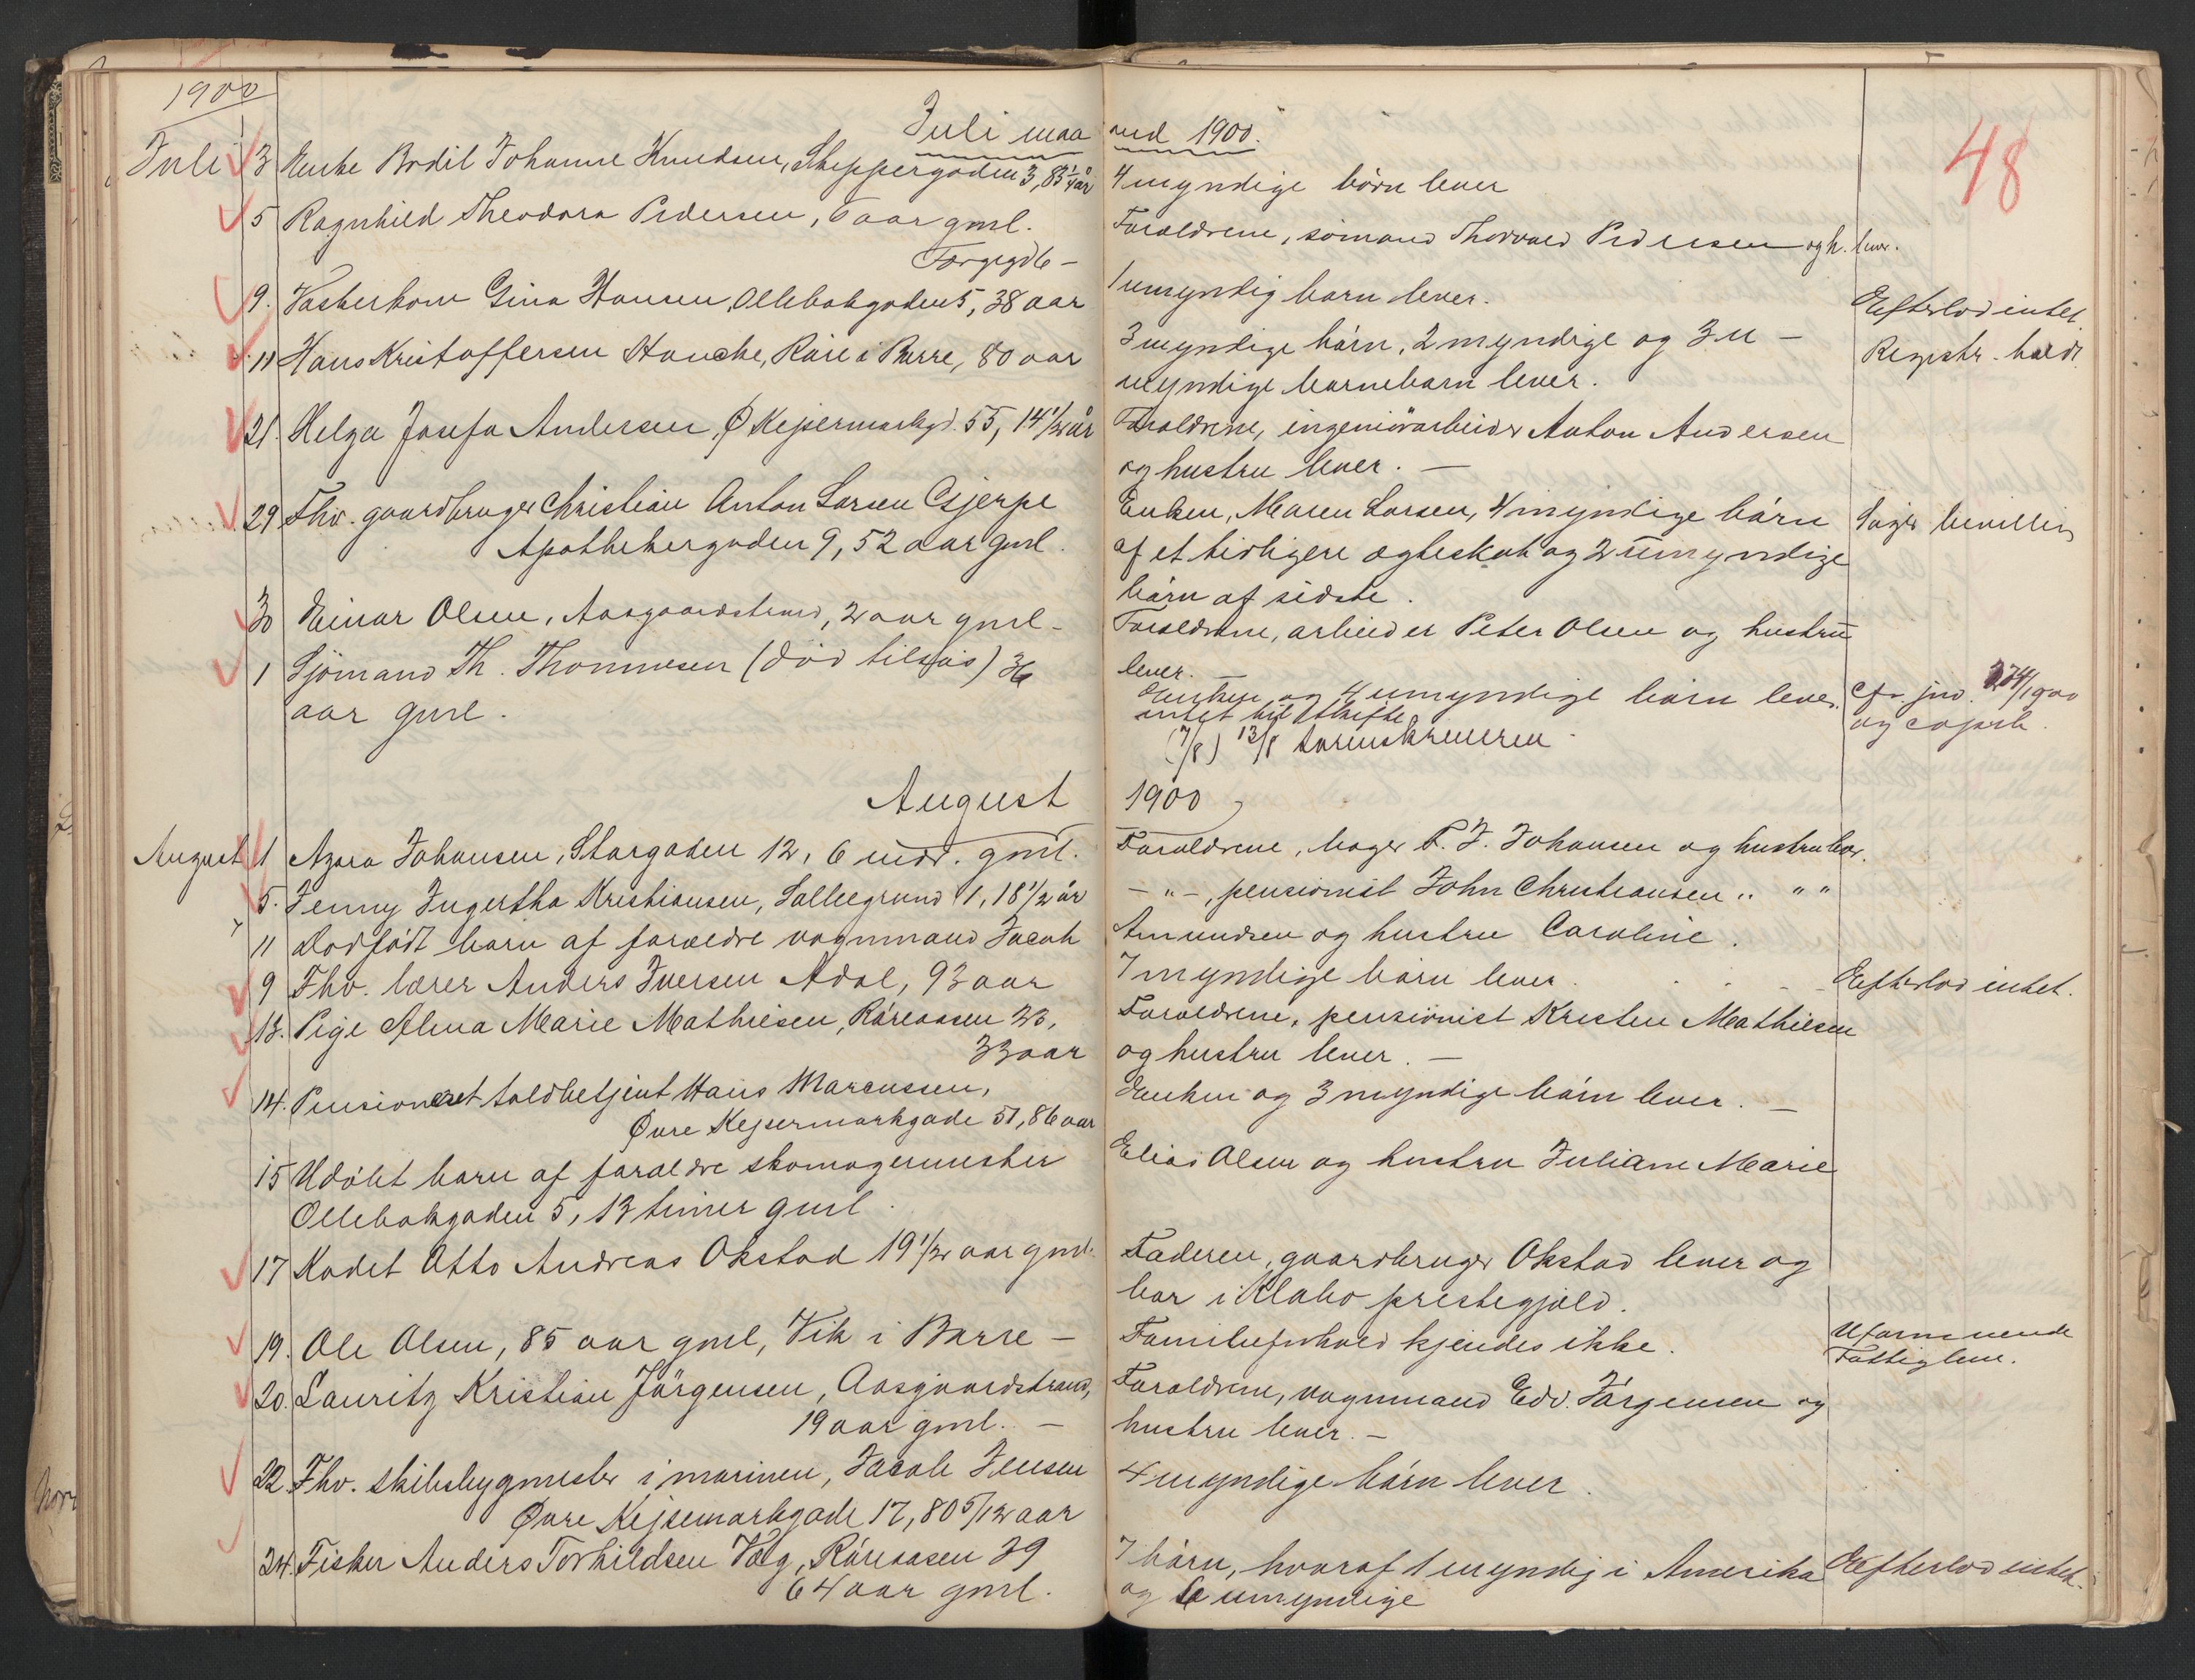 1900
Juli maaned 1900.
48
Juli 3 Enke Bodil Johanne Knudsen, Skippergaden 3, 83 1/4 år
4 myndige börn lever
5 Ragnhild Theodora Pedersen, 6 aar gml.
Torvgd 6 -
Forældrene, sömand Thorvald Pedersen og h. lever.
9. Vaskerkone Gina Hansen, Ollebakgaden 5, 38 aar
1 umyndig barn lever.
Efterlod intet.
11 Hans Kristoffersen Hauche, Röre i Borre, 80 aar
3 myndige börn, 2 myndige og 3 u-
myndige barnebarn lever.
Registr. holdt.
21. Helga Josefa Andersen, Ø Kejsermarkgd. 55, 14 1/2 år
Forældrene, ingeniörarbeider Anton Andersen
og hustru lever. -
29 Fhv. gaardbruger Christian Anton Larsen Gjerpe
Apothekergaden 9, 52 aar gml.
Enken, Maren Larsen, 4 myndige börn
af et tidligere ægteskab og 2 umyndige
börn af sidste.
Søger bevilling
30 Einar Olsen, Aasgaardstrand, 2 aar gml -
Forældrene, arbeider Peter Olsen og hustru
lever. -
1 Sjömand Th. Thommesen (död tilsøs) 36
aar gml.
Enken og 4 umyndige börn lever.
intet til skifte
(7/8) 13/8 sorenskriveren.
Cfr. jno. 274/1900
og copieb.
August 1900
August 1 Azora Johansen, Storgaden 12, 6 mdr. gml.
Forældrene, bager P. J. Johansen og hustru lever.
5. Jenny Ingertha Kristiansen, Solliegrund 1, 18 1/2 år
- " -, pensionist John Christiansen " " "
11 Dödfödt barn af forældre vognmand Jacob
Amundsen og hustru Caroline.
9 Fhv. lærer Anders Iversen Adal, 93 aar
7 myndige börn lever.
Efterlod intet.
13. Pige Alma Marie Mathiesen, Röreaasen 23,
33 aar
Forældrene, pensionist Kristen Mathiesen
og hustru lever. -
14. Pensioneret toldbetjent Hans Marcussen,
Øvre Kejsermarkgade 51, 86 aar
Enken og 3 myndige börn lever. -
15 Udöbt barn af forældre skomagermester
Ollebakgaden 5, 13 timer gml.
Elias Olsen og hustru Juliane Marie
17 Kadet Otto Andreas Okstad 19 1/2 aar gml.
Faderen, gaardbruger Okstad lever og
bor i Klæbo prestegjeld.
19. Ole Olsen, 85 aar gml, Vik i Borre -
Familieforhold kjendes ikke.
Uformuende
Fattiglem.
20. Lauritz Kristian Jörgensen, Aasgaardstrand,
19 aar gml. -
Forældrene, vognmand Edv. Jörgensen og
hustru lever. -
22. Fhv. skibsbygmester i marinen, Jacob Jensen
Øvre Kejsemarkgade 17, 80 5/12 aar
4 myndige börn lever.
24. Fisker Anders Torkildsen Vog, Röreaasen 29
64 aar gml.
7 börn, hvoraf 1 myndig i Amerika
og 6 umyndige
Efterlod intet.